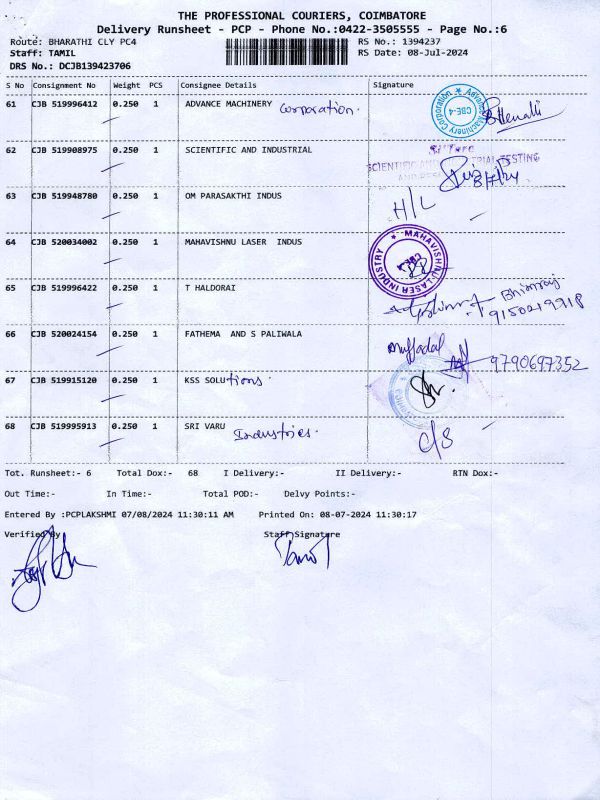 THE PROFESSIONAL COURIERS, COIMBATORE
Delivery Runsheet - PCP - Phone No.:0422-3505555 - Page No.:6
Route: BHARATHI CLY PC4 RS No.: 1394237
Staff: TAMIL RS Date: 08-Jul-2024
DRS No.: DCJB139423706
S No Consignment No Weight PCS Consignee Details Signature
61 CJB 519996412 0.250 1 ADVANCE MACHINERY Corporation. Advance Machinery Corporation CBE-4
62 CJB 519908975 0.250 1 SCIENTIFIC AND INDUSTRIAL SCIENTIFIC AND INDUSTRIAL TESTING
8/7/24
63 CJB 519948780 0.250 1 OM PARASAKTHI INDUS H/L
64 CJB 520034002 0.250 1 MAHAVISHNU LASER INDUS MAHAVISHNU LASER INDUSTRY
65 CJB 519996422 0.250 1 T HALDORAI
9150219918
66 CJB 520024154 0.250 1 FATHEMA AND S PALIWALA 9790697352
67 CJB 519915120 0.250 1 KSS SOLUtions.
68 CJB 519995913 0.250 1 SRI VARU Industries. C/S
Tot. Runsheet:- 6 Total Dox:- 68 I Delivery:- II Delivery:- RTN Dox:-
Out Time:- In Time:- Total POD:- Delvy Points:-
Entered By :PCPLAKSHMI 07/08/2024 11:30:11 AM Printed On: 08-07-2024 11:30:17
Verified By Staff Signature